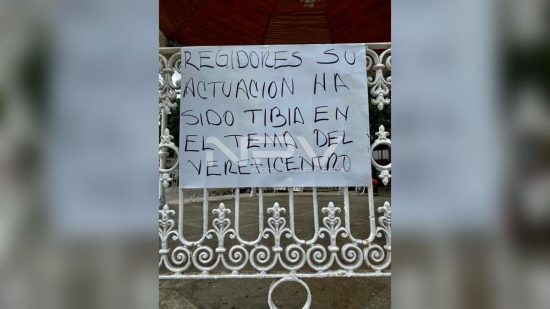 REGIDORES SU
ACTUACION HA
SIDO TIBIA EN
EL TEMA DEL
VEREFICENTRO